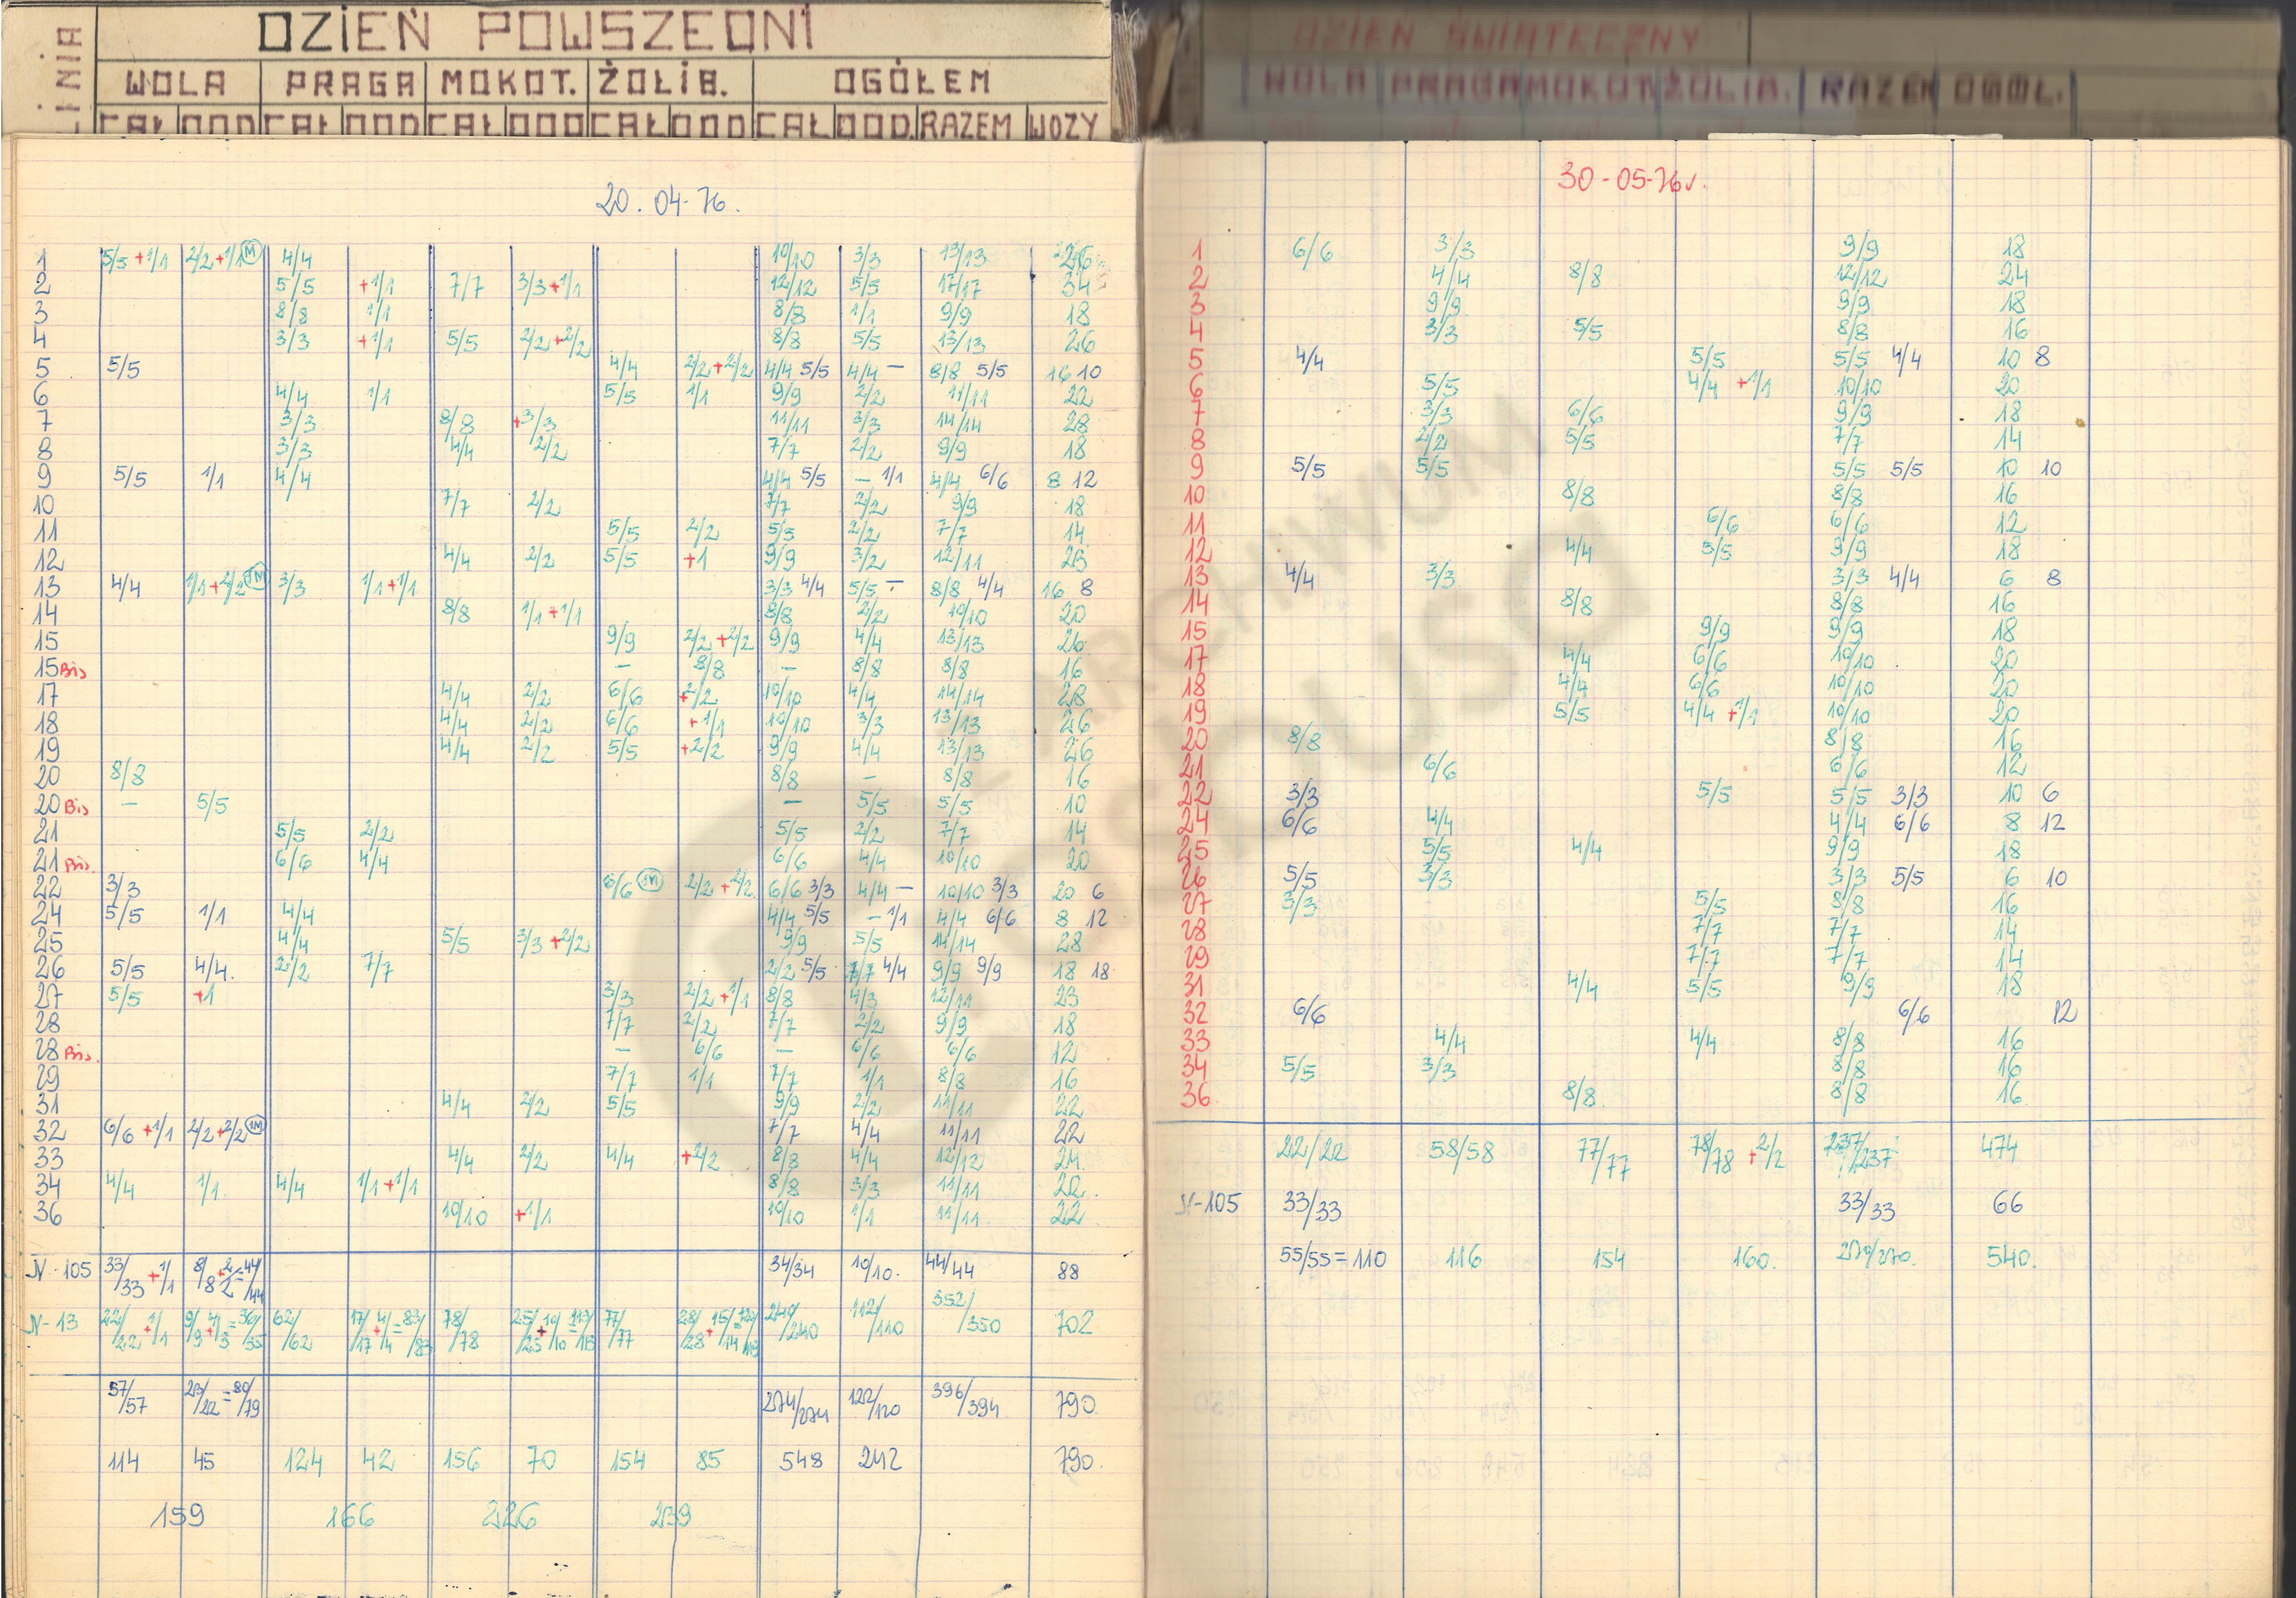 LINIA
DZIEŃ POWSZEDNI
WOLA PRAGA MOKOT. ŻOLIB. OGÓŁEM
CAŁ DOD CAŁ DOD CAŁ DOD CAŁ DOD CAŁ DOD. RAZEM WOZY
20.04-76.
1 5/5+1/1 2/2+1/1 M 4/4 10/10 3/3 13/13 26
2 5/5 +1/1 7/7 3/3+1/1 12/12 5/5 17/17 34
3 8/8 1/1 8/8 1/1 9/9 18
4 3/3 +1/1 5/5 2/2+2/2 8/8 5/5 13/13 26
5 5/5 4/4 2/2+2/2 4/4 5/5 4/4 – 8/8 5/5 16 10
6 4/4 1/1 5/5 1/1 9/9 2/2 11/11 22
7 3/3 8/8 +3/3 11/11 3/3 14/14 28
8 3/3 4/4 2/2 7/7 2/2 9/9 18
9 5/5 1/1 4/4 4/4 5/5 – 1/1 4/4 6/6 8 12
10 7/7 2/2 7/7 2/2 9/9 18
11 5/5 2/2 5/5 2/2 7/7 14
12 4/4 2/2 5/5 +1 9/9 3/2 12/11 23
13 4/4 1/1+2/2 1M 3/3 1/1+1/1 3/3 4/4 5/5 – 8/8 4/4 16 8
14 8/8 1/1+1/1 8/8 2/2 10/10 20
15 9/9 2/2+2/2 9/9 4/4 13/13 26
15 Bis – 8/8 – 8/8 8/8 16
17 4/4 2/2 6/6 +2/2 10/10 4/4 14/14 28
18 4/4 2/2 6/6 +1/1 10/10 3/3 13/13 26
19 4/4 2/2 5/5 +2/2 9/9 4/4 13/13 26
20 8/8 8/8 – 8/8 16
20 Bis – 5/5 – 5/5 5/5 10
21 5/5 2/2 5/5 2/2 7/7 14
21 Bis. 6/6 4/4 6/6 4/4 10/10 20
22 3/3 6/6 1M 2/2+2/2 6/6 3/3 4/4 – 10/10 3/3 20 6
24 5/5 1/1 4/4 4/4 5/5 – 1/1 4/4 6/6 8 12
25 4/4 5/5 3/3+2/2 9/9 5/5 14/14 28
26 5/5 4/4. 2/2 7/7 2/2 5/5 7/7 4/4 9/9 9/9 18 18
27 5/5 +1 3/3 2/2+1/1 8/8 4/3 12/11 23
28 7/7 2/2 7/7 2/2 9/9 18
28 Bis. – 6/6 – 6/6 6/6 12
29 7/7 1/1 7/7 1/1 8/8 16
31 4/4 2/2 5/5 9/9 2/2 11/11 22
32 6/6+1/1 2/2+2/2 1M 7/7 4/4 11/11 22
33 4/4 2/2 4/4 +2/2 8/8 4/4 12/12 24
34 4/4 1/1. 4/4 1/1+1/1 8/8 3/3 11/11 22.
36 10/10 +1/1 10/10 1/1 11/11 22
N-105 33/33+1/1 8/8+2/2=44/44 34/34 10/10. 44/44 88
N-13 22/22+1/1 9/9+4/3=36/35 62/62 17/17+4/4=83/83 78/78 25/25+10/10=113/113 77/77 28/28+15/14=120/119 240/240 112/110 352/350 702
57/57 23/22=80/79 274/274 122/120 396/394 790.
114 45 124 42 156 70 154 85 548 242 790.
159 166 226 239
DZIEŃ ŚWIĄTECZNY
WOLA PRAGA MOKOT. ŻOLIB. RAZEM OGÓŁ.
30-05-76r.
1 6/6 3/3 9/9 18
2 4/4 8/8 12/12 24
3 9/9 9/9 18
4 3/3 5/5 8/8 16
5 4/4 5/5 5/5 4/4 10 8
6 5/5 4/4 +1/1 10/10 20
7 3/3 6/6 9/9 18
8 2/2 5/5 7/7 14
9 5/5 5/5 5/5 5/5 10 10
10 8/8 8/8 16
11 6/6 6/6 12
12 4/4 5/5 9/9 18
13 4/4 3/3 3/3 4/4 6 8
14 8/8 8/8 16
15 9/9 9/9 18
17 4/4 6/6 10/10 20
18 4/4 6/6 10/10 20
19 5/5 4/4 +1/1 10/10 20
20 8/8 8/8 16
21 6/6 6/6 12
22 3/3 5/5 5/5 3/3 10 6
24 6/6 4/4 4/4 6/6 8 12
25 5/5 4/4 9/9 18
26 5/5 3/3 3/3 5/5 6 10
27 3/3 5/5 8/8 16
28 7/7 7/7 14
29 7/7 7/7 14
31 4/4 5/5 9/9 18
32 6/6 6/6 12
33 4/4 4/4 8/8 16
34 5/5 3/3 8/8 16
36 8/8 8/8 16
22/22 58/58 77/77 78/78 +2/2 237/237 474
N-105 33/33 33/33 66
55/55=110 116 154 160. 270/270. 540.
Z ARCHIWUM